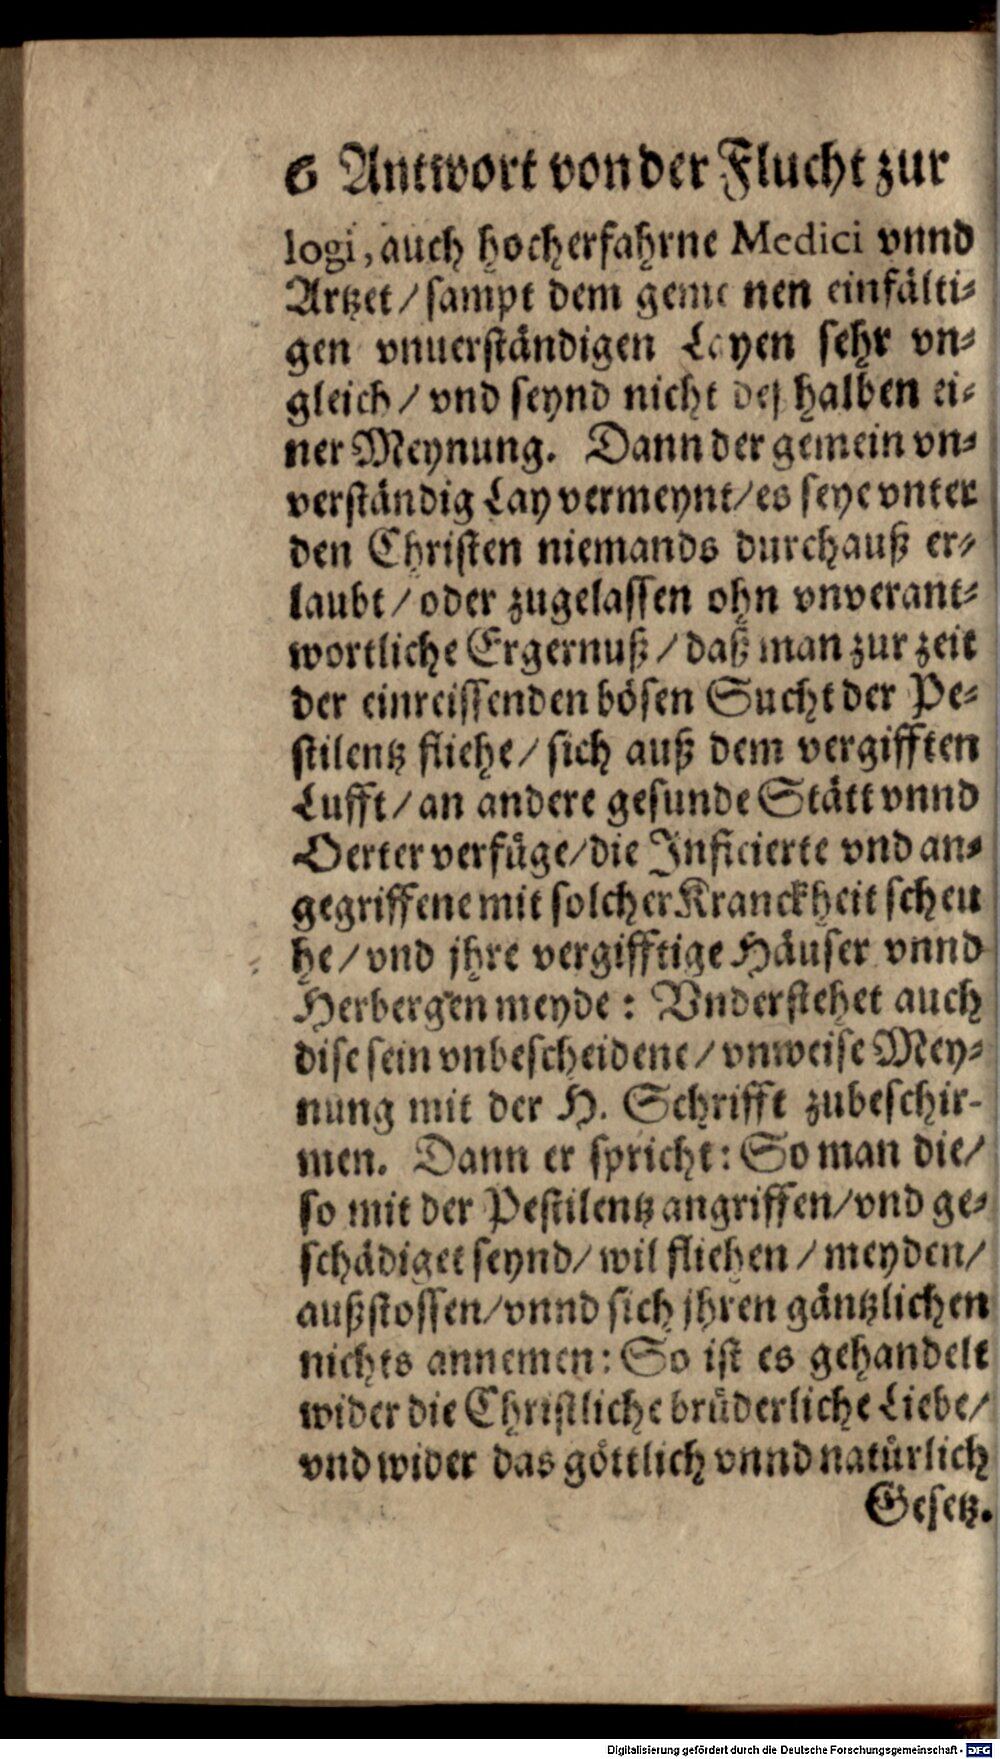 6 Antwort von der Flucht zur
logi, auch hocherfahrne Medici vnnd
Artzet / sampt dem geme nen einfälti-
gen vnuerständigen Layen sehr vn-
gleich / vnd seynd nicht deß halben ei-
ner Meynung. Dann der gemein vn-
verständig Lay vermeynt / es seye vnter
den Christen niemands durchauß er-
laubt / oder zugelassen ohn vnverant-
wortliche Ergernuß / daß man zur zeit
der einreissenden bösen Sucht der Pe-
stilentz fliehe / sich auß dem vergifften
Lufft / an andere gesunde Stätt vnnd
Oerter verfüge / die Inficierte vnd an-
gegriffene mit solcher Kranckheit scheu
he / vnd jhre vergifftige Häuser vnnd
Herbergen meyde : Vnderstehet auch
dise sein vnbescheidene / vnweise Mey-
nung mit der H. Schrifft zubeschir-
men. Dann er spricht : So man die /
so mit der Pestilentz angriffen / vnd ge-
schädiget seynd / wil fliehen / meyden /
außstossen / vnnd sich jhren gäntzlichen
nichts annemen : So ist es gehandelt
wider die Christliche brüderliche Liebe /
vnd wider das göttlich vnnd natürlich
Gesetz.
Digitalisierung gefördert durch die Deutsche Forschungsgemeinschaft - DFG